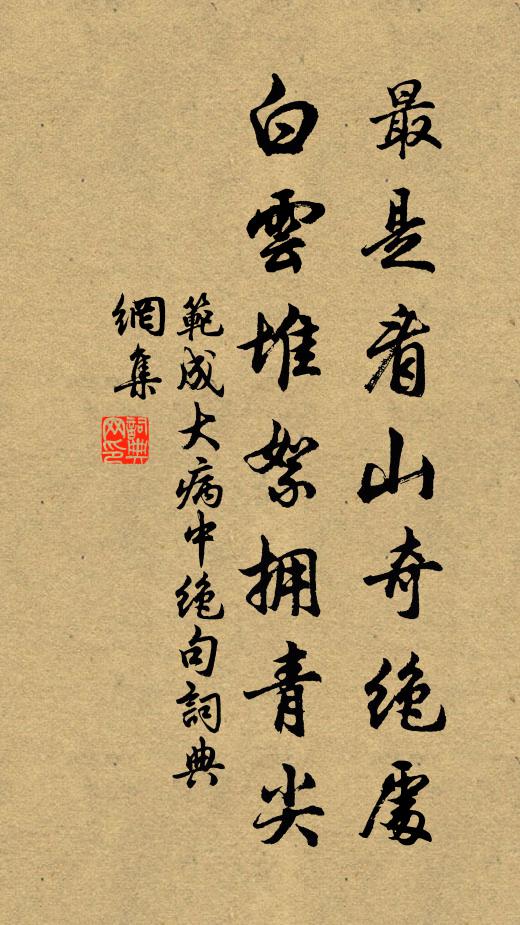 最是看山奇绝處
白雲堆絮拥青尖
範成大病中绝句詞典
網集
詞典网印